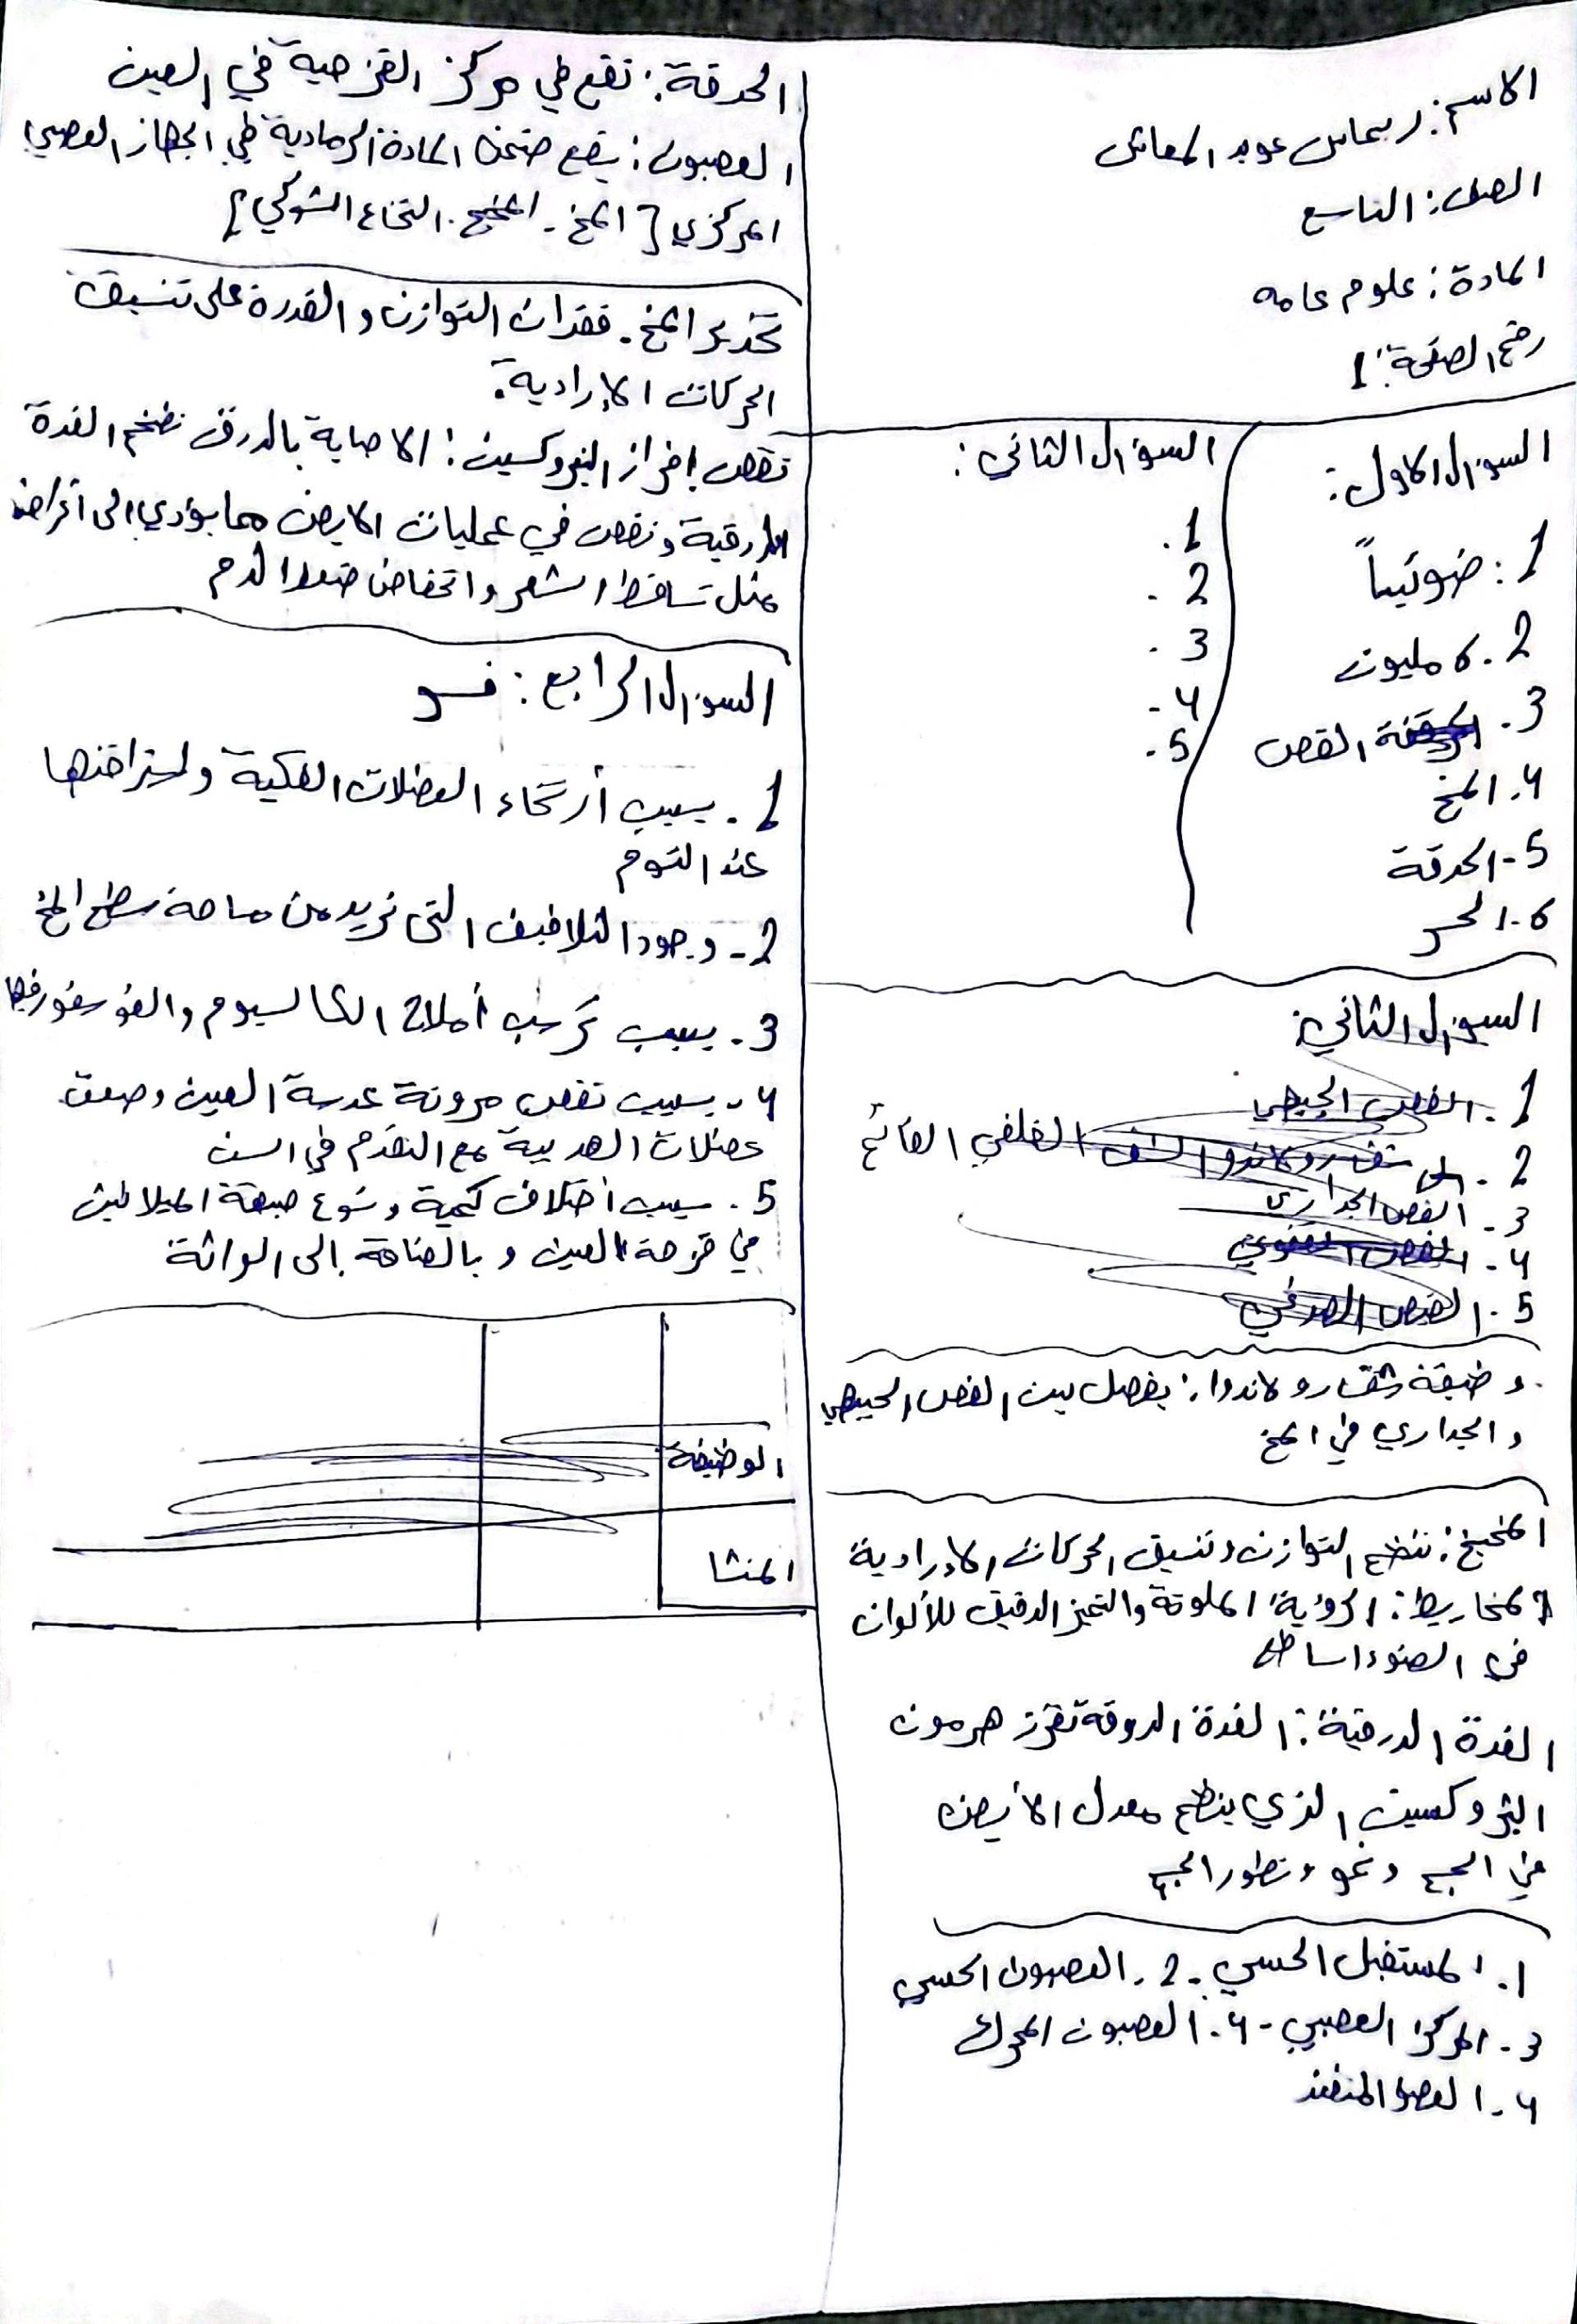 الاسم: ريماس عويد المعاش
الصف: التاسع
المادة: علوم عامه
رقم الصفحة: 1
السؤال الاول:
1: ضوئياً
2. 6 مليون
3. القص
4. المخ
5- الحدقة
6. الحر
السؤال الثاني:
1.
2.
3.
4-
5.
السؤال الثاني:
1. الفص الجبهي
2. شق رولاندو الشق الخلفي القائم
3- الفص الجداري
4- الفص القفوي
5. الفص الصدغي
وظيفة شق رولاندوا: يفصل بين الفص الجبهي
والجداري في المخ
المخيخ: تنظيم التوازن وتنسيق الحركات الإرادية
المخاريط: الرؤية الملونة والتميز الدقيق للألوان
في الضوء اساطع
الغدة الدرقية: الغدة الدرقة تفرز هرمون
التيروكسين الذي ينظم معدل الأيض
في الجسم ونمو وتطور الجسم
1. المستقبل الحسي. 2. العصبون الحسي
3. المركز العصبي - 4. العصبون المحرك
4. العضو المنفذ
الحدقة: تقع في مركز القزحية في العين
العصبون: يقع ضمن المادة الرمادية في الجهاز العصبي
المركزي [المخ - المخيخ. النخاع الشوكي]
تخدير المخ. فقدان التوازن والقدرة على تنسيق
الحركات الإرادية.
نقص إفراز التيروكسين: الاصابة بالدرق تضخم الغدة
الدرقية ونقص في عمليات الايض مما يؤدي الى أعراض
مثل تساقط الشعر وانخفاض ضغط الدم
السؤال الرابع: فسر
1. بسبب أرتخاء العضلات الفكية واستراختها
عند النوم
2- وجود التلافيف التي تزيد من مساحة سطح المخ
3. بسبب ترسب أملاح الكالسيوم والفوسفور فيها
4. بسبب نقص مرونة عدسة العين وضعف
عضلات الهدبية مع التقدم في السن
5. بسبب أختلاف كمية ونوع صبغة الميلانين
في قزحة العين وبالضافة إلى الوراثة
الوظيفة
المنشا